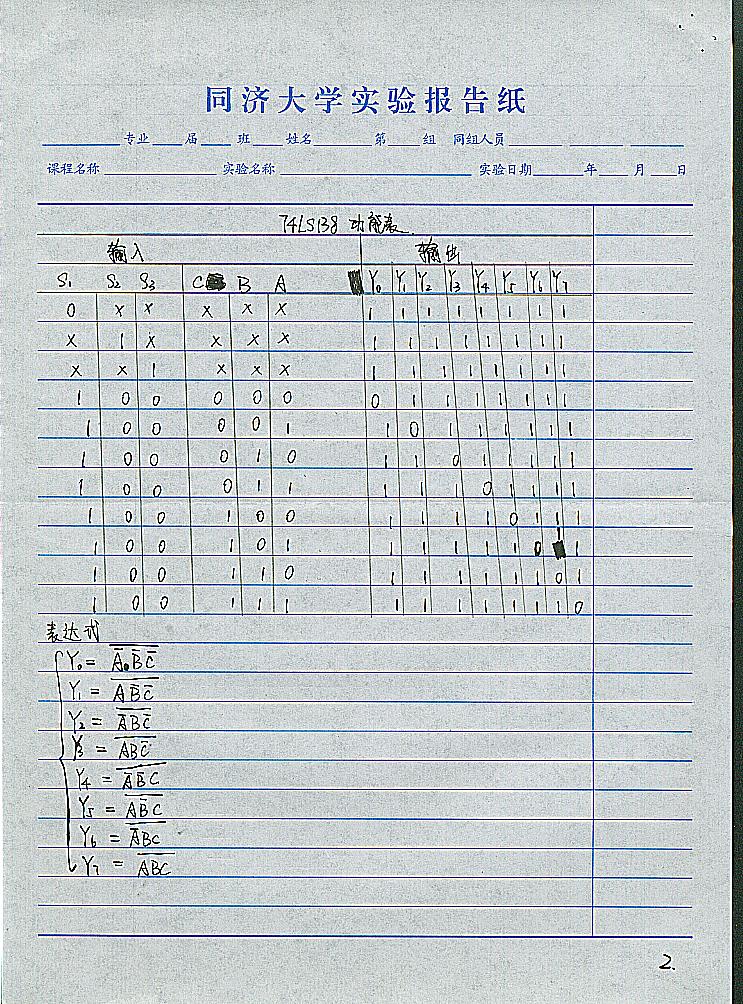 同济大学实验报告纸
专业 届 班 姓名 第 组 同组人员
课程名称 实验名称 实验日期 年 月 日
74LS138 功能表
输入 输出
S₁ S₂ S₃ C B A Y₀ Y₁ Y₂ Y₃ Y₄ Y₅ Y₆ Y₇
0 x x x x x 1 1 1 1 1 1 1 1
x 1 x x x x 1 1 1 1 1 1 1 1
x x 1 x x x 1 1 1 1 1 1 1 1
1 0 0 0 0 0 0 1 1 1 1 1 1 1
1 0 0 0 0 1 1 0 1 1 1 1 1 1
1 0 0 0 1 0 1 1 0 1 1 1 1 1
1 0 0 0 1 1 1 1 1 0 1 1 1 1
1 0 0 1 0 0 1 1 1 1 0 1 1 1
1 0 0 1 0 1 1 1 1 1 1 0 1 1
1 0 0 1 1 0 1 1 1 1 1 1 0 1
1 0 0 1 1 1 1 1 1 1 1 1 1 0
表达式
Y₀ = \overline{\overline{A}\,\overline{B}\,\overline{C}}
Y₁ = \overline{A\overline{B}\,\overline{C}}
Y₂ = \overline{\overline{A}B\overline{C}}
Y₃ = \overline{AB\overline{C}}
Y₄ = \overline{\overline{A}\,\overline{B}C}
Y₅ = \overline{A\overline{B}C}
Y₆ = \overline{\overline{A}BC}
Y₇ = \overline{ABC}
2.